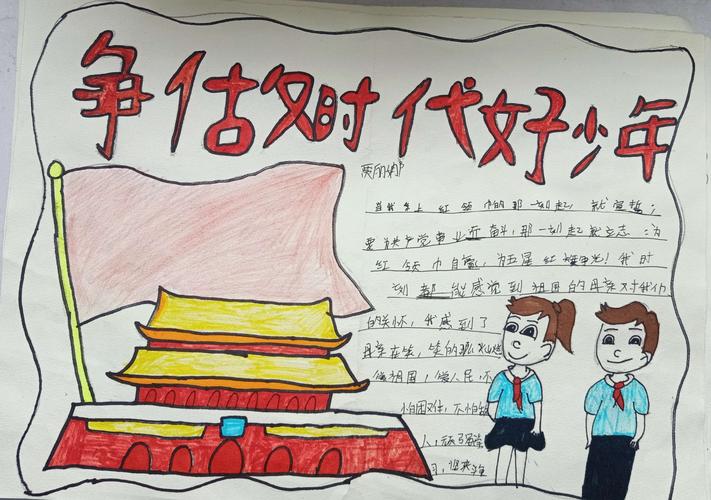 争做时代好少年
当我系上红领巾的那一刻起，就宣誓：
要为共产党事业而奋斗，那一刻起我立志：为
红领巾自豪，为五星红旗争光！我时
刻都能感觉到祖国的母亲对我们
的关怀，我感到了
母亲在笑，笑的那么灿烂
祖国，人民，不
怕困难，不怕
人，顽强